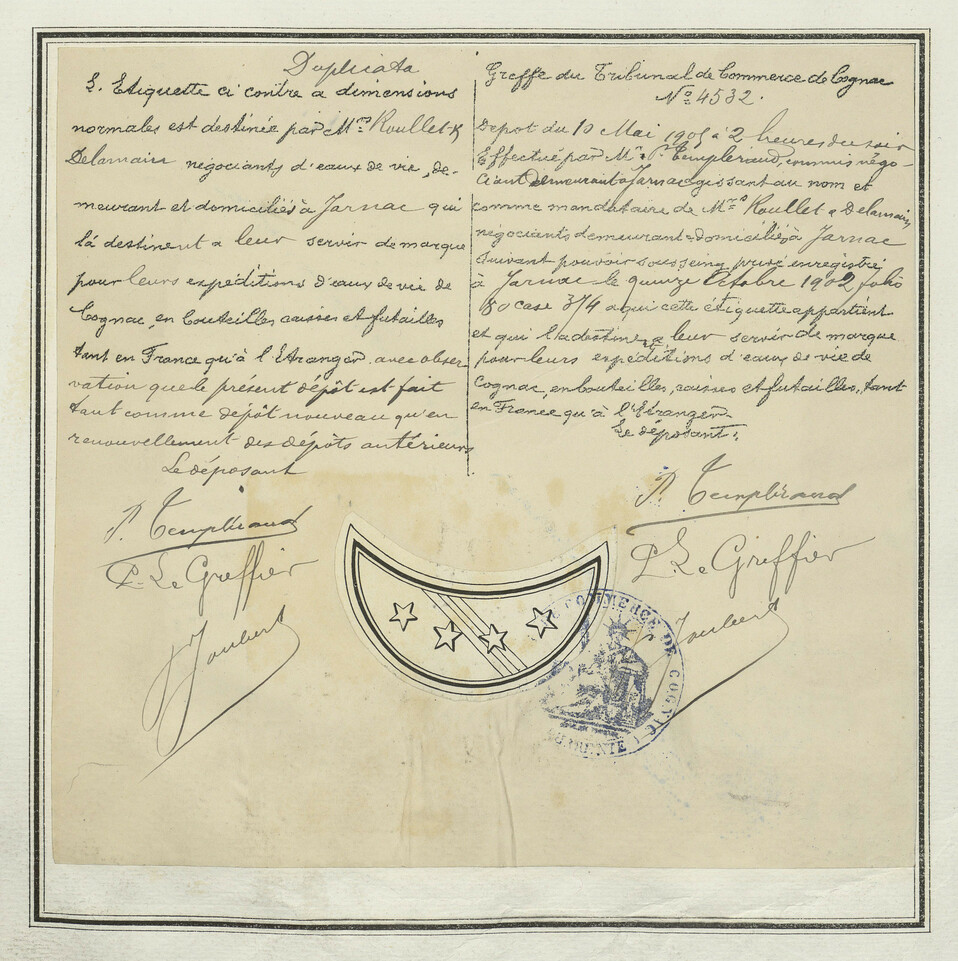 Duplicata
L. Etiquette ci contre a dimensions
normales est destinée par Mrs Roullet &
Delamain négociants d'eaux de vie, de-
meurant et domiciliés à Jarnac qui
la destinent a leur servir de marque
pour leurs expéditions d'eaux de vie de
Cognac, en bouteilles caisses et futailles
tant en France qu'à l'Etranger avec obser-
vation que le présent dépôt est fait
tant comme dépôt nouveau qu'en
renouvellement des dépôts antérieurs
Le déposant
P. Templéraud
P. Le Greffier
Joubert
Greffe du Tribunal de Commerce de Cognac
No 4532.
Depot du 10 Mai 1905 à 2 heures du soir
Effectué par Mr P. Templéraud, commis négo-
ciant demeurant à Jarnac gissant au nom et
comme mandataire de Mrs Roullet & Delamain
négociants demeurant & domiciliés à Jarnac
suivant pouvoir sous seing privé enregistré
à Jarnac le quinze Octobre 1902 folio
80 case 374 a qui cette étiquette appartient
et qui la destine a leur servir de marque
pour leurs expéditions d'eaux de vie de
Cognac, en bouteilles, caisses et futailles, tant
en France qu'à l'Etranger
Le déposant,
P. Templéraud
P. Le Greffier
Joubert
COMMERCE DE COGNAC
CHARENTE